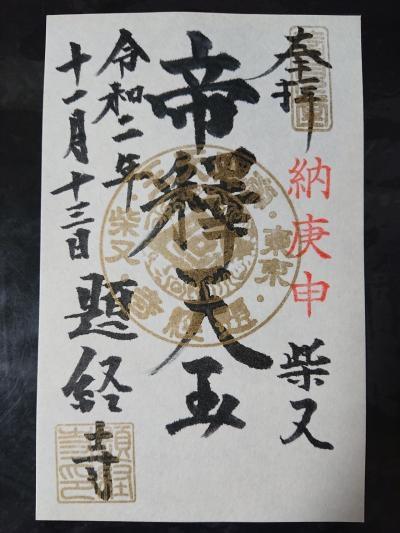 奉拝
納庚申
柴又
帝釋天王
令和二年
十一月十三日
題経寺
東京
柴又